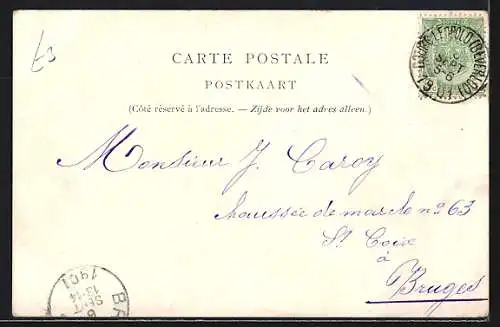 £3
CARTE POSTALE
POSTKAART
(Côté réservé à l'adresse. — Zijde voor het adres alleen.)
Monsieur J. Caroy
Chaussée de no 63
St Croix
à
Bruges
1901
13-14
SEPT
6